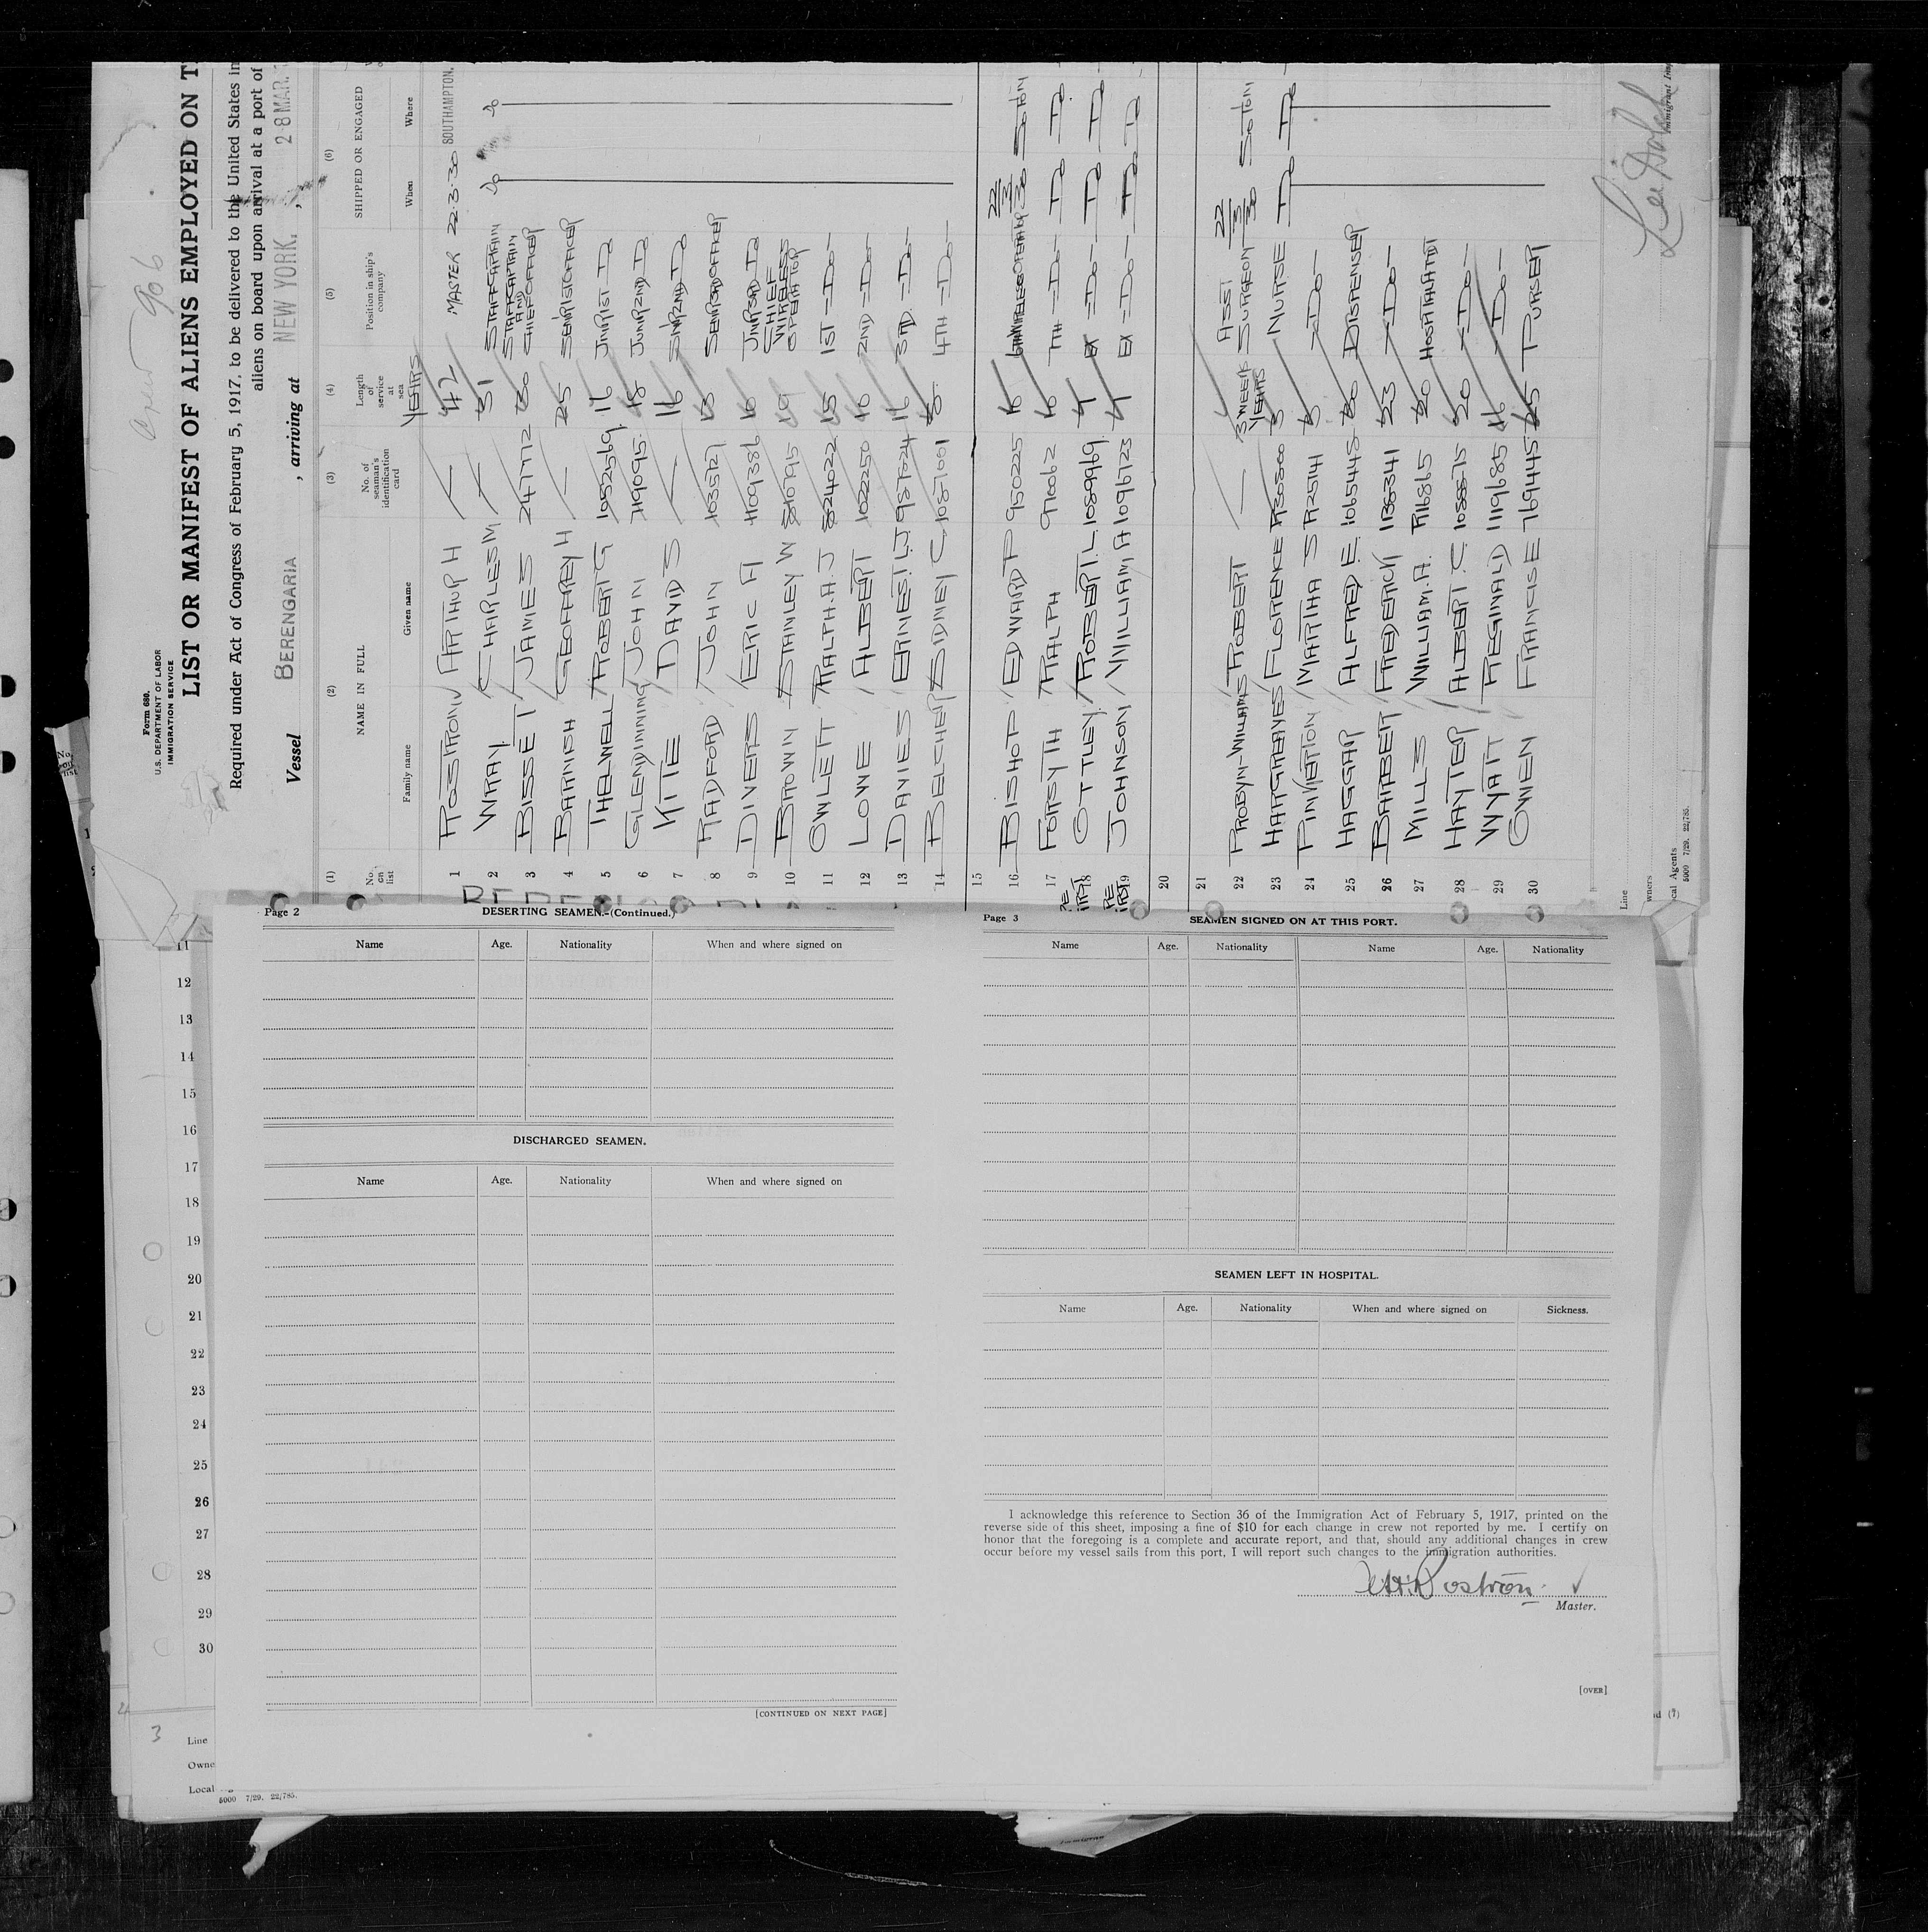 Crew 906
Form 680.
U.S. DEPARTMENT OF LABOR
IMMIGRATION SERVICE
LIST OR MANIFEST OF ALIENS EMPLOYED ON
Required under Act of Congress of February 5, 1917, to be delivered to the United States
aliens on board upon arrival at a port of
Vessel BERENGARIA, arriving at NEW YORK, 28 MAR.
(1) (2) (3) (4) (5) (6)
No. on list NAME IN FULL No. of seaman's identification card Length of service at sea Position in ship's company SHIPPED OR ENGAGED
Family name Given name YEARS When Where
1 ROSTRON ARTHUR H — 42 MASTER 22.3.30 SOUTHAMPTON.
2 WRAY CHARLES M — 31 STAFF CAPTAIN Do Do
3 BISSETT JAMES 247772 30 STAFF CAPTAIN AND CHIEF OFFICER
4 BARNISH GEOFFREY H — 25 SENR 1ST OFFICER
5 THELWELL ROBERT G 1052569 16 JUNR 1ST DO
6 GLENDINNING JOHN 719095 18 JUNR 2ND DO
7 KITTE DAVID S — 16 SNR 2ND DO
8 RADFORD JOHN SENR 3RD OFFICER
9 DIVERS ERIC A 1109386 10 JUNR 3RD DO
10 BROWN STANLEY W 19 CHIEF WIRELESS OPERATOR
11 OWLETT RALPH.A.J 824022 15 1ST —DO—
12 LOWE ALBERT 1022250 10 2ND —DO—
13 DAVIES ERNEST.W 16 3RD —DO—
14 BELCHER SIDNEY C 1087601 4TH —DO—
15
16 BISHOP EDWARD P 950225 22/3/30 SOTON
17 FORSYTH RALPH 970062 7TH —DO— DO DO
18 OTTLEY ROBERT.L. 1089969 EX —DO— DO DO
19 JOHNSON WILLIAM A 1096723 EX —DO— DO DO
20
21
22 PROBYN-WILLIAMS ROBERT — 3 WEEKS ASST SURGEON 22/3/30 SOTON
23 HARGREAVES FLORENCE YEARS NURSE DO DO
24 PINKERTON MARTHA S R25141 —DO—
25 HAGGAR ALFRED E. 1065445 DISPENSER
26 BARBER FREDERICK 1138341 23 —DO—
27 MILLS WILLIAM.A. R16865 20 HOSPITAL ATTDT
28 HAYTER ALBERT.C. 1088575 20 —DO—
29 WYATT REGINALD 1119685 —DO—
30 OWEN FRANCIS E 769445 25 PURSER
Line
wners
cal Agents
5000 7/29. 22/785.
11
12
13
14
15
16
17
18
19
20
21
22
23
24
25
26
27
28
29
30
3
Line
Owne
Local
5000 7/29. 22/785.
Page 2
DESERTING SEAMEN.-(Continued.)
Name Age. Nationality When and where signed on
DISCHARGED SEAMEN.
Name Age. Nationality When and where signed on
[CONTINUED ON NEXT PAGE]
Page 3
SEAMEN SIGNED ON AT THIS PORT.
Name Age. Nationality Name Age. Nationality
SEAMEN LEFT IN HOSPITAL.
Name Age. Nationality When and where signed on Sickness.
I acknowledge this reference to Section 36 of the Immigration Act of February 5, 1917, printed on the
reverse side of this sheet, imposing a fine of $10 for each change in crew not reported by me. I certify on
honor that the foregoing is a complete and accurate report, and that, should any additional changes in crew
occur before my vessel sails from this port, I will report such changes to the immigration authorities.
A.H. Rostron.
Master.
[OVER]